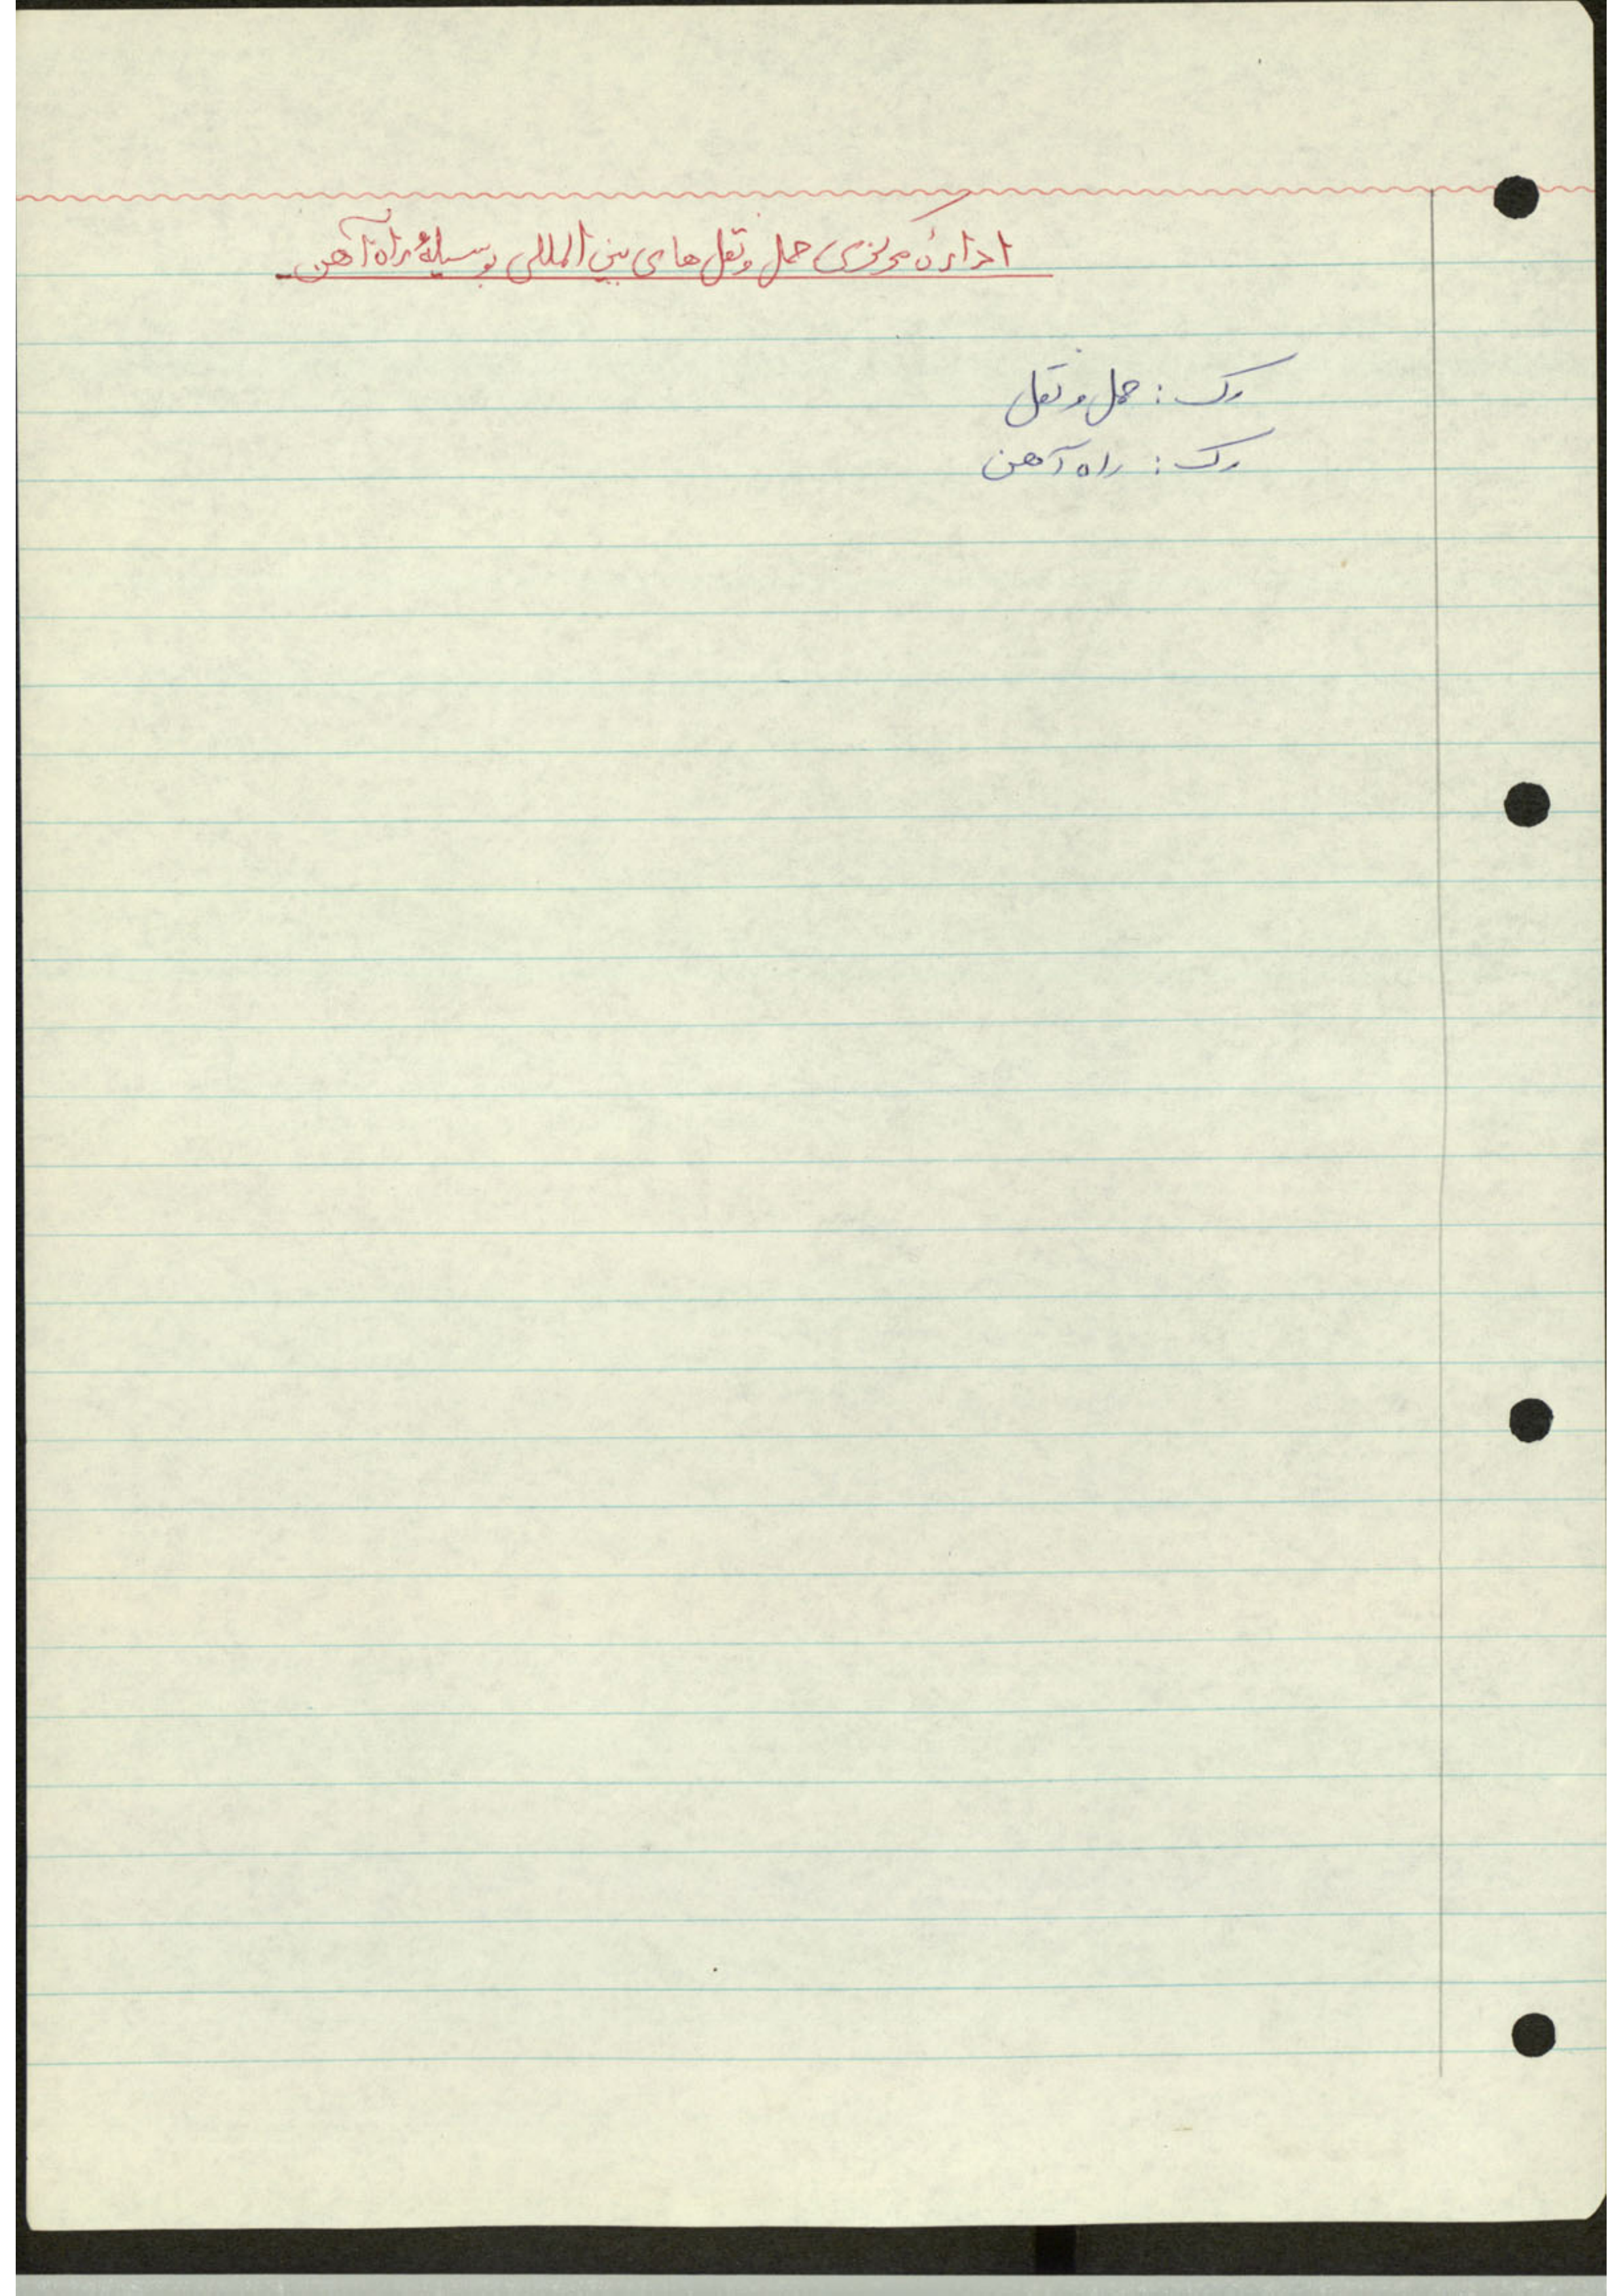 ادارۀ مرکزی حمل و نقل های بین المللی بوسیلۀ راه آهن -
رک : حمل و نقل
رک : راه آهن